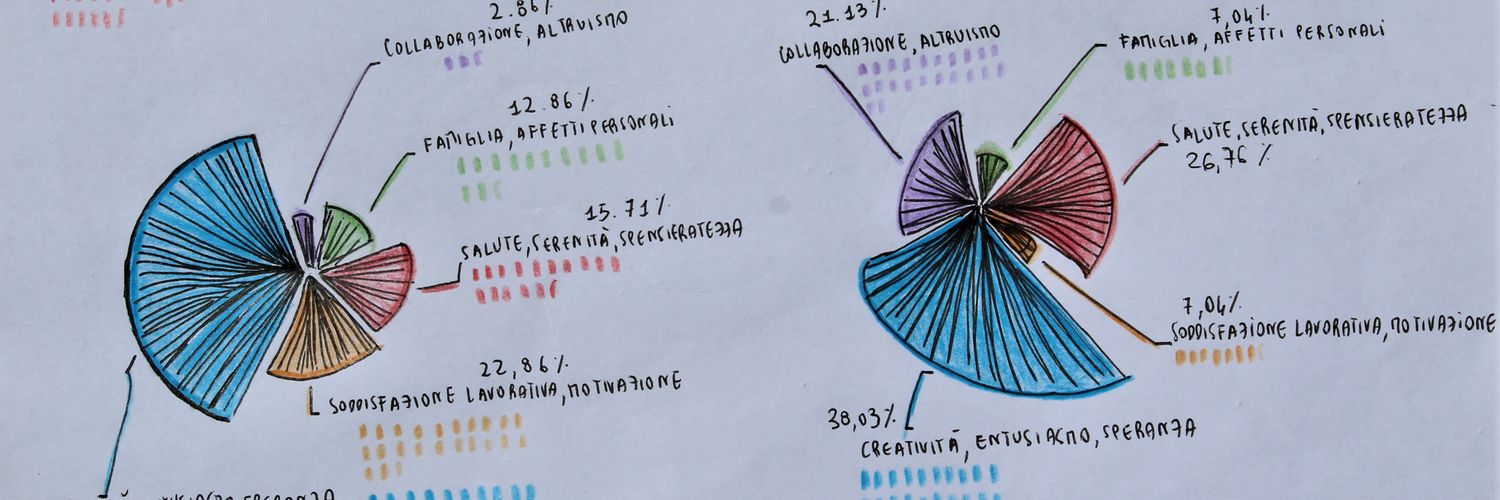 2.86%
COLLABORAZIONE, ALTRUISMO
12.86%
FAMIGLIA, AFFETTI PERSONALI
15.71%
SALUTE, SERENITÀ, SPENSIERATEZZA
22,86%
SODDISFAZIONE LAVORATIVA, MOTIVAZIONE
SPERANZA
21.13%
COLLABORAZIONE, ALTRUISMO
7,04%
FAMIGLIA, AFFETTI PERSONALI
SALUTE, SERENITÀ, SPENSIERATEZZA
26,76 %
7,04%
SODDISFAZIONE LAVORATIVA, MOTIVAZIONE
38,03%
CREATIVITÀ, ENTUSIASMO, SPERANZA